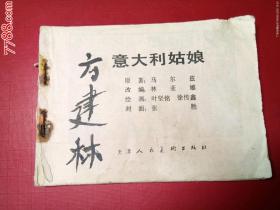 方建林
意大利姑娘
原著:马尔兹
改编:林亚雄
绘画:叶坚铭 徐传鑫
封面:张胜
天津人民美术出版社